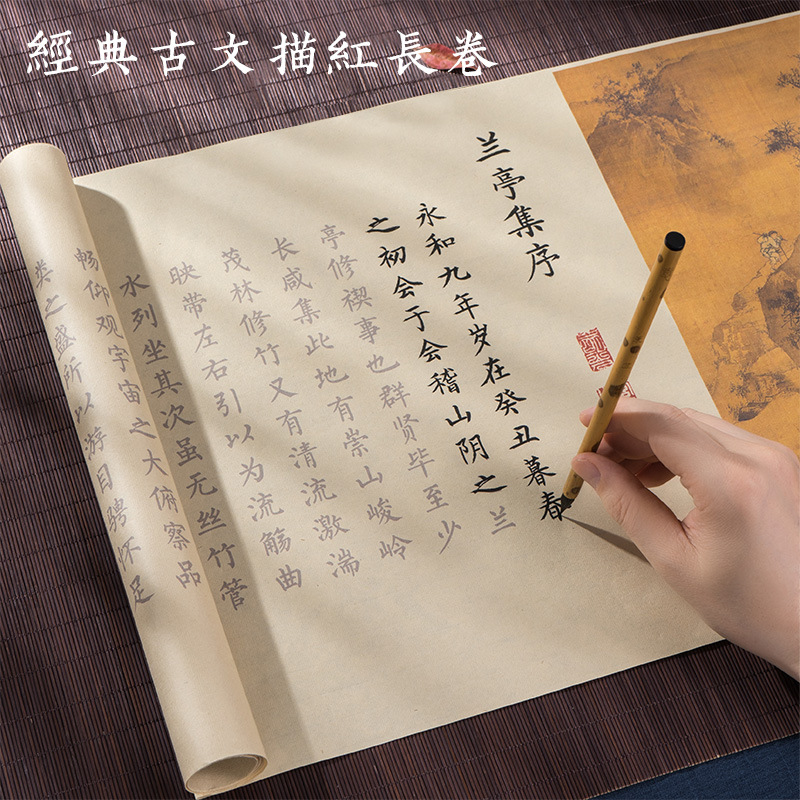 經典古文描紅長卷
兰亭集序
永和九年岁在癸丑暮春
之初会于会稽山阴之兰
亭修禊事也群贤毕至少
长咸集此地有崇山峻岭
茂林修竹又有清流激湍
映带左右引以为流觞曲
水列坐其次虽无丝竹管
畅仰观宇宙之大俯察品
类之盛所以游目骋怀足